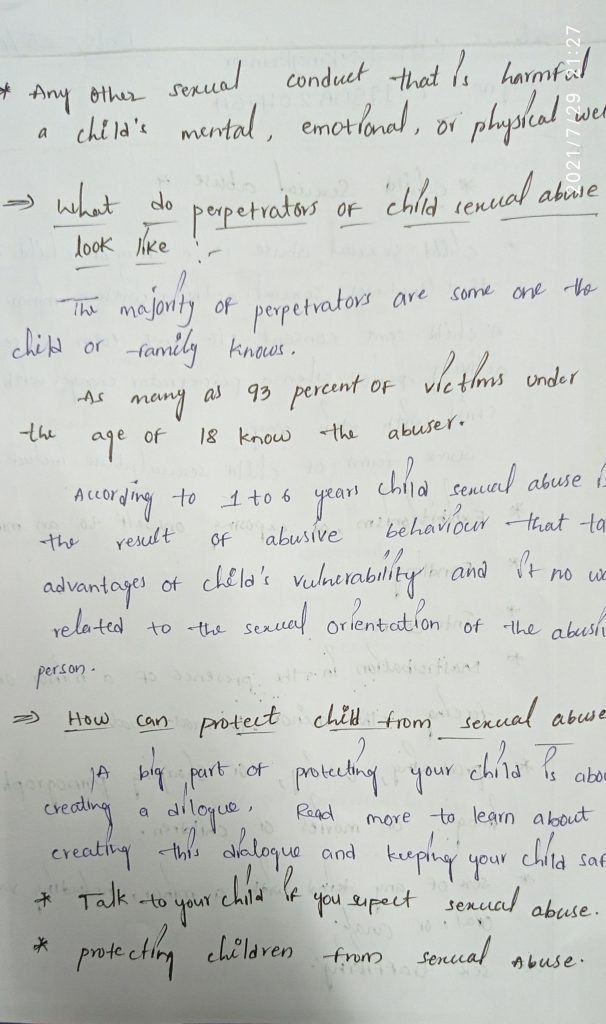 * Any other sexual conduct that is harmful
a child's mental, emotional, or physical wel
⇒ What do perpetrators of child sexual abuse
look like :-
The majority of perpetrators are some one the
child or family knows.
As many as 93 percent of victims under
the age of 18 know the abuser.
According to 1 to 6 years child sexual abuse is
the result of abusive behaviour that ta
advantages of child's vulnerability and it no wa
related to the sexual orientation of the abusi
person.
⇒ How can protect child from sexual abuse
A big part of protecting your child is abou
creating a dilogue, Read more to learn about
creating this dialogue and keeping your child saf
* Talk to your child if you supect sexual abuse.
* protecting children from sexual Abuse.
2021/7/29 21:27